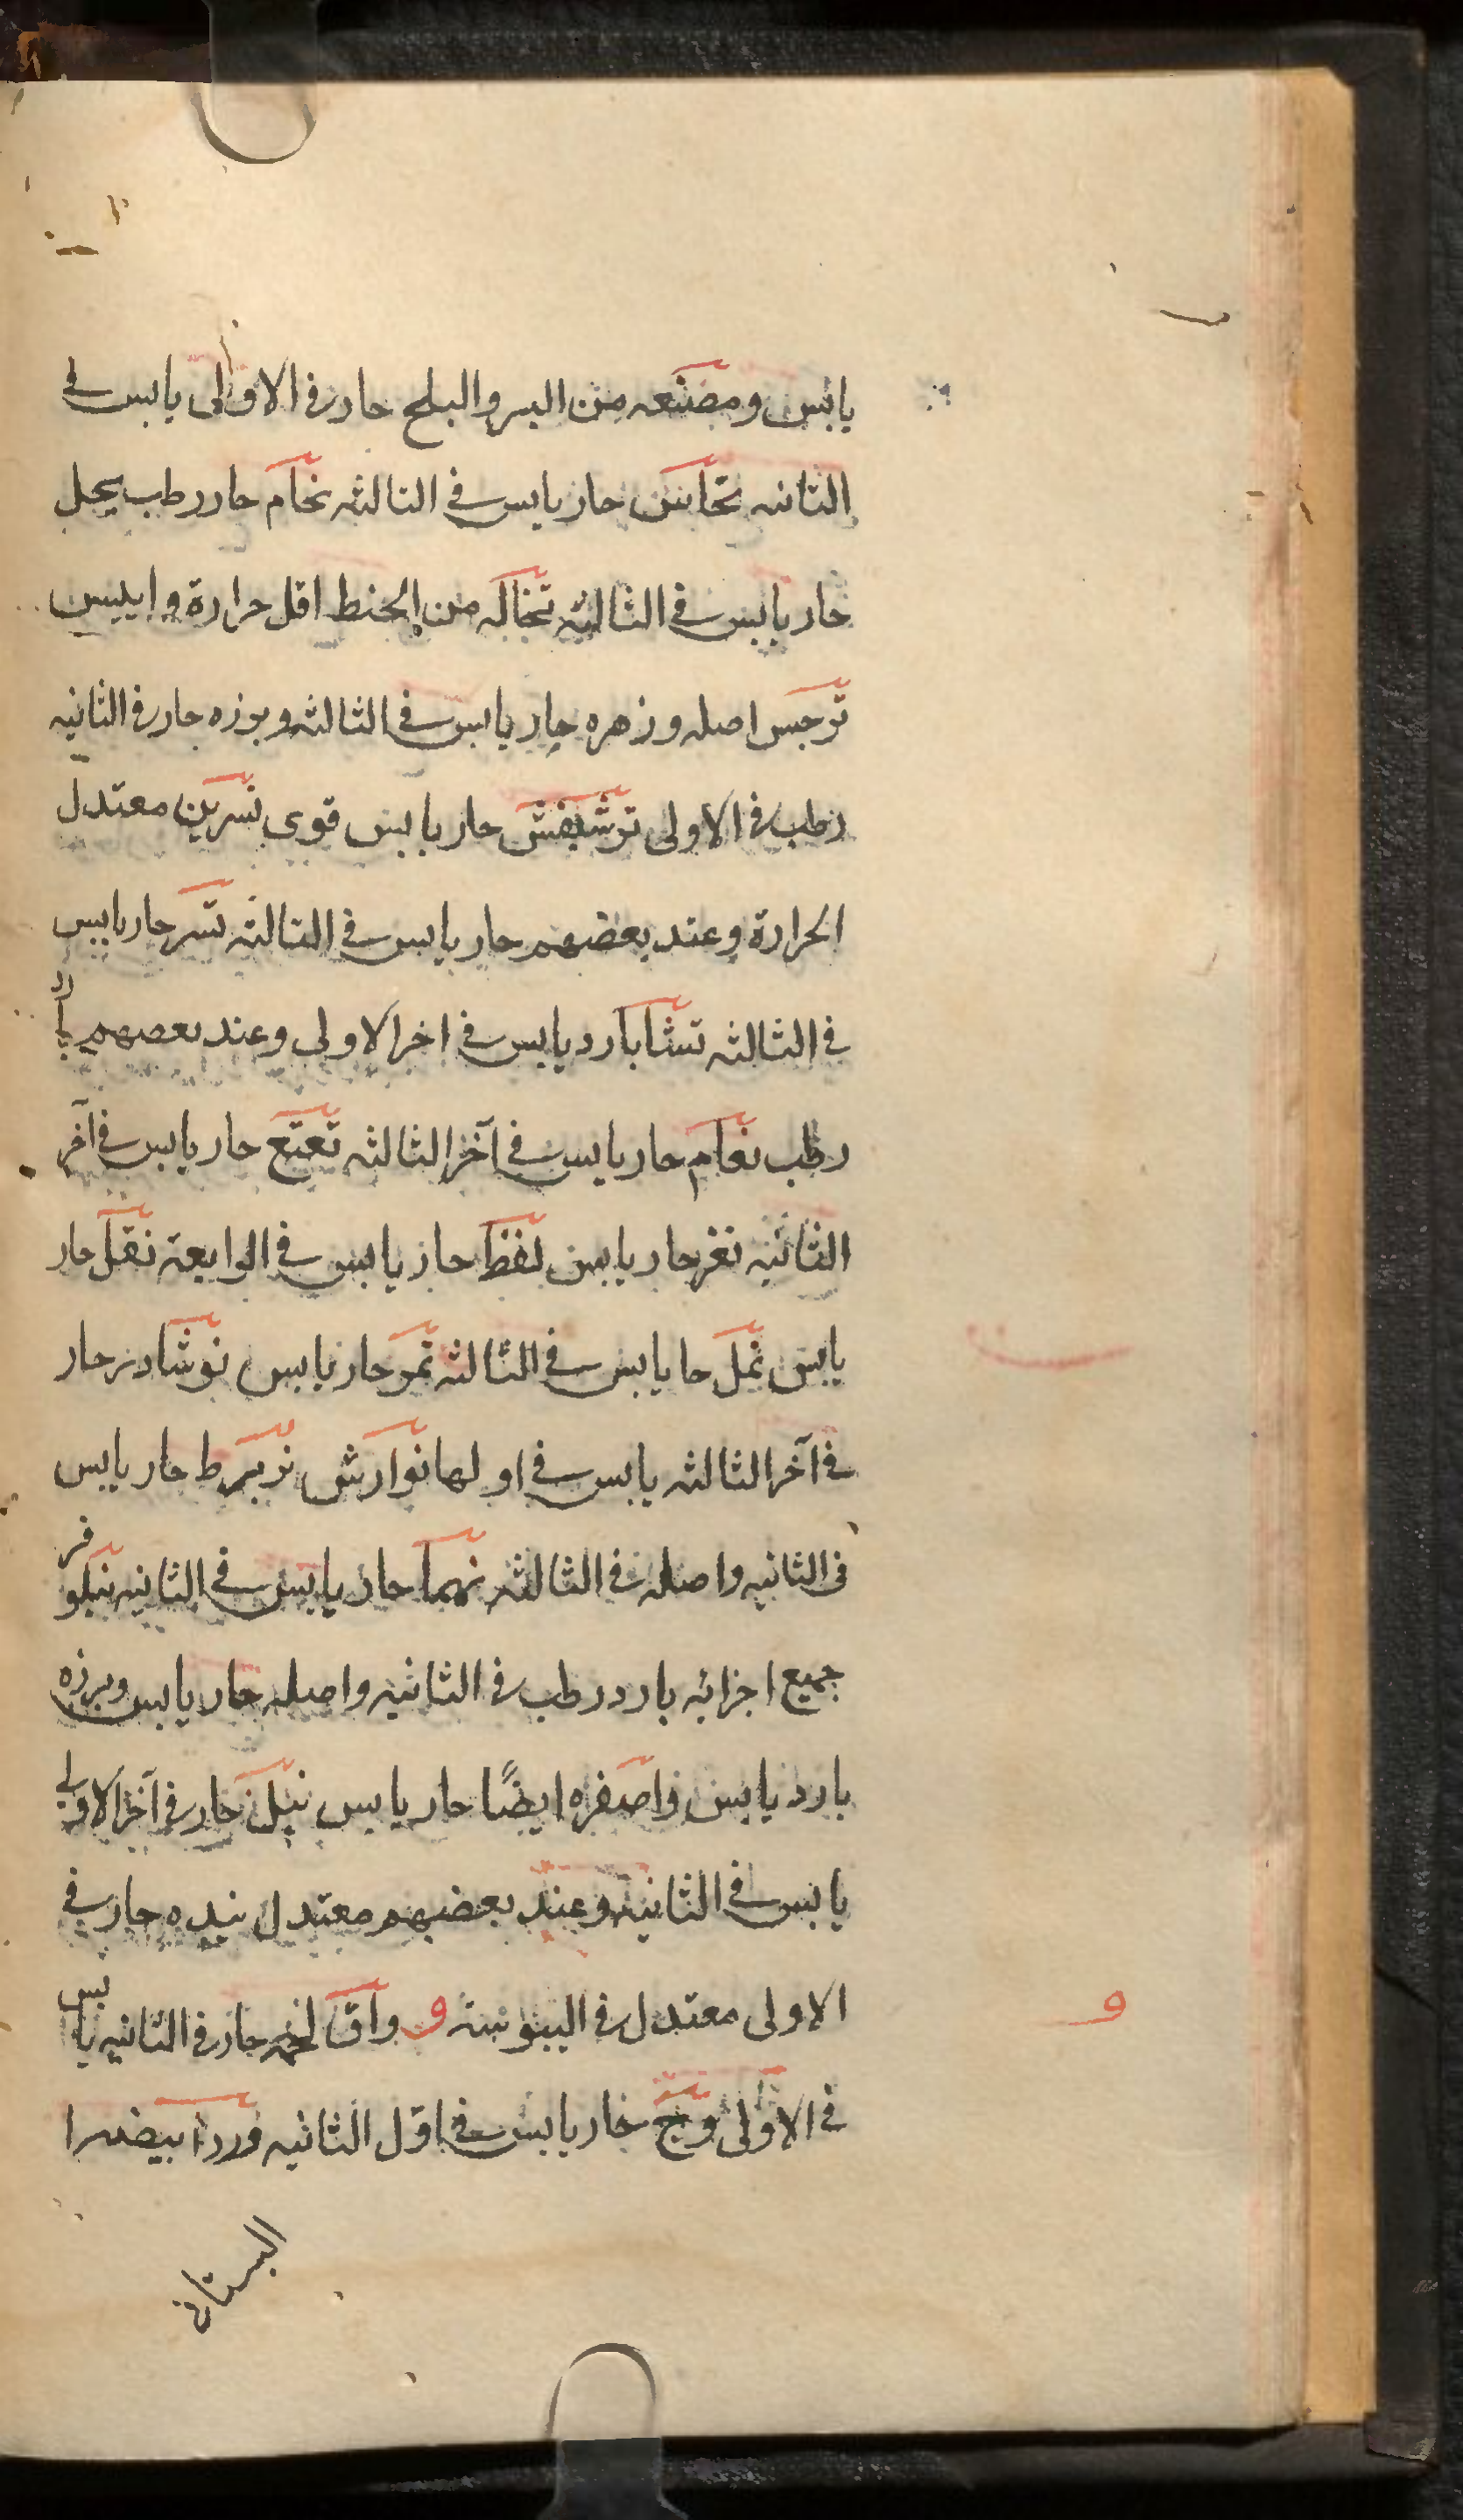 يابس ومصنعه من البسر والبلح حار في الاولى يابس في
الثانيه نحاس حار يابس في الثالثه نحام حار رطب يحل
حار يابس في الثالثه نخاله من الحنط اقل حرارة وايبس
نرجس اصله وزهره حار يابس في الثالثه وبوزه حار في الثانيه
رطب في الاولى حار يابس قوى نسرين معتدل
الحرارة وعند بعضهم حار يابس في الثالثه نسر حار يابس
في الثالثه نشا بارد يابس في اخر الاولى وعند بعضهم بارد
رطب نعام حار يابس في آخر الثالثه نعنع حار يابس في آخر
الثانيه نغر حار يابس نفط حار يابس في الرابعة نقل حار
يابس نمل حا يابس في الثالثه نمر حار يابس نوشادر حار
في آخر الثالثه يابس في اولها نوارش حار يابس
في الثانيه واصله في الثالثه نهما حار يابس في الثانيه نيلوفر
جميع اجزائه بارد رطب في الثانيه واصله حار يابس وبرزه
بارد يابس واصفره ايضًا حار يابس نيل حار في آخر الاولى
يابس في الثانيه وعند بعضهم معتدل نيده حار في
الاولى معتدل في اليبوسة و واق لحمه حار في الثانيه يابس
في الاولى وج حار يابس في اوّل الثانيه ورد ابيض
البستاني
و